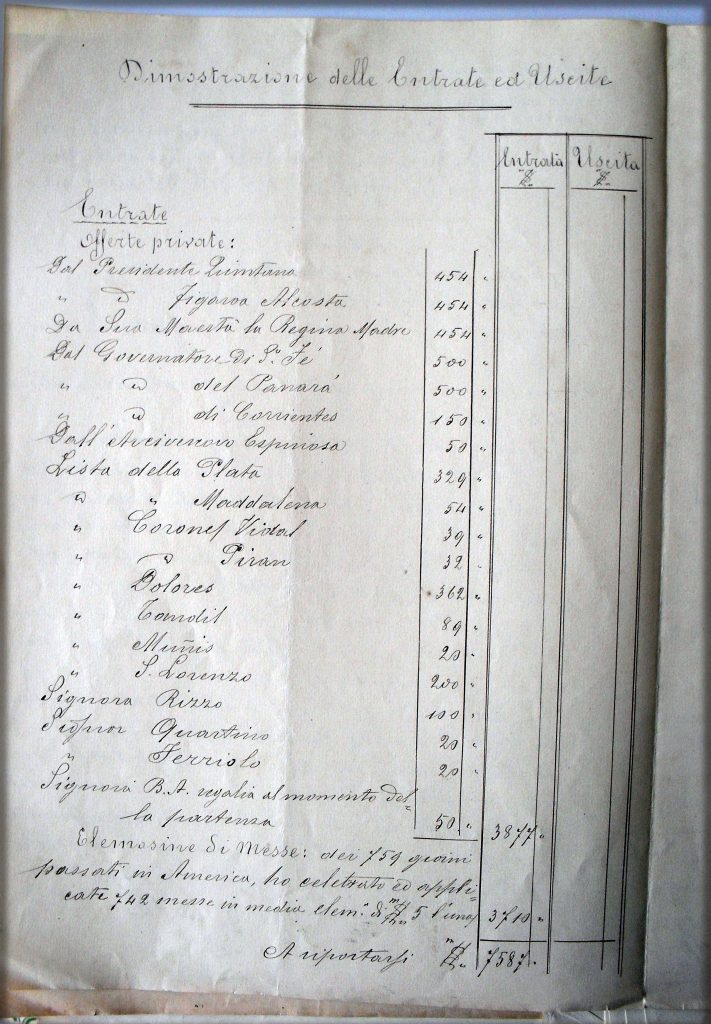 Dimostrazione delle Entrate ed Uscite
Entrata Uscita
Entrate
Offerte private:
Dal Presidente Quintana 454 "
" D Figaroa Alcosta 454 "
Da Sua Maestà la Regina Madre 454 "
Dal Governatore di S. Fé 500 "
" D del Panará 500 "
" D di Corrientes 150 "
Dall'Arcivenovo Espinosa 50 "
Lista della Plata 329 "
D " Maddalena 54 "
" Coronel Vidal 39 "
" D Piran 32 "
" Dolores 362 "
" Tandil 89 "
" Muñis 20 "
" S. Lorenzo 200 "
Signora Rizzo 100 "
Signor Quartino 20 "
" Ferriolo 20 "
Signora B. A. regalia al momento del=
la partenza 50 " 3877 "
Elemosine di Messe: dei 759 giorni
passati in America, ho celebrato ed appli=
cate 742 messe in media elem. di 5 l'una 3710 "
A riportarsi 7587 "